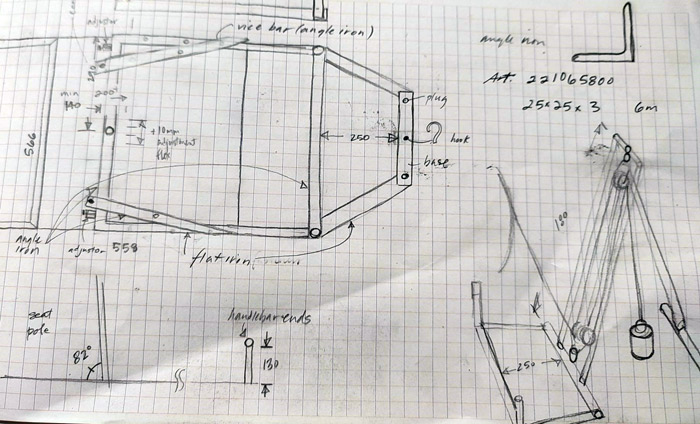 adjustor
vice bar (angle iron)
angle iron
Art. 221065800
25x25x3 6m
plug
min
140
200
+10mm
adjustment
flex
566
250
hook
base
angle
iron
adjustor 558
flat iron
seat
pole
82°
handlebar ends
130
250